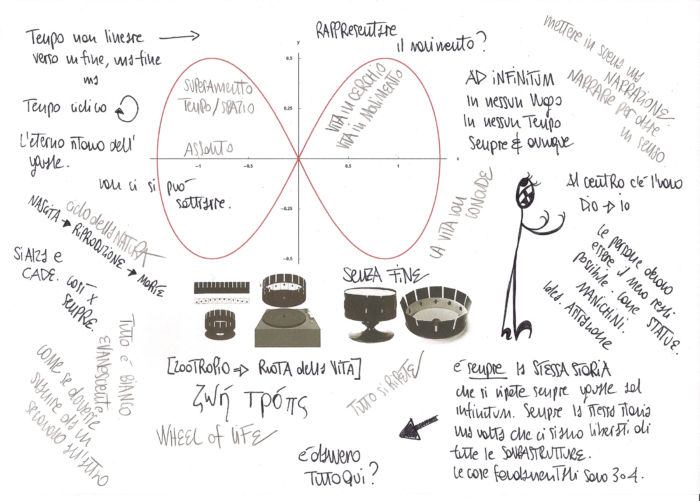 Tempo non lineare
verso un fine, una fine
ma
Tempo ciclico
L'eterno ritorno dell'
uguale.
non ci si può
sottrarre.
ciclo della NATURA
NASCITA → RIPRODUZIONE → MORTE
Si ALZA e
CADE. così x
SEMPRE.
TUTTO È BIANCO
EVANESCENTE
COME SE dovesse
svanire da un
secondo all'altro
SUPERAMENTO
TEMPO/SPAZIO
ASSOLUTO
RAPPRESENTARE
il movimento?
VITA in CERCHIO
VITA in MOVIMENTO
y
0.5
0.25
-0.25
-0.5
-1
-0.5
0.5
1
x
AD INFINITUM
in nessun luogo
in nessun Tempo
Sempre & ovunque
mettere in scena una
NARRAZIONE.
NARRARE per dare
un senso
LA VITA NON
CONCLUDE
Al centro c'è l'uomo
Dio → io
Le persone devono
essere il meno reali
possibile. Come STATUE.
MANICHINI.
SENZA FINE
[ZOOTROPIO => RUOTA della VITA]
ζωή τρόπς
WHEEL of LIFE
TUTTO SI RIPETE
È davvero
TUTTO QUI?
è sempre la STESSA STORIA
che si ripete sempre uguale ad
infinitum. Sempre la stessa storia
una volta che ci siamo liberati di
tutte le SOVRASTRUTTURE.
Le cose fondamentali sono 3 o 4.